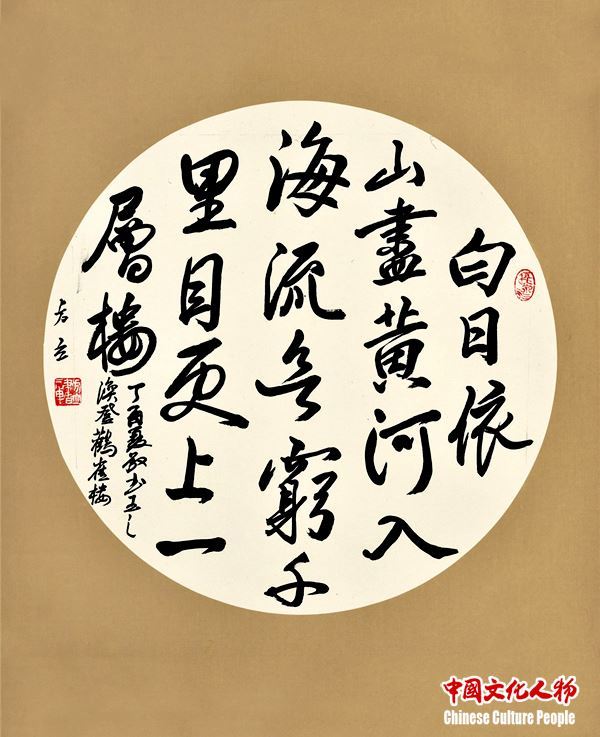 白日依
山盡黄河入
海流欲窮千
里目更上一
層樓
丁酉夏书王之
渙登鸛雀樓
中國文化人物
Chinese Culture People